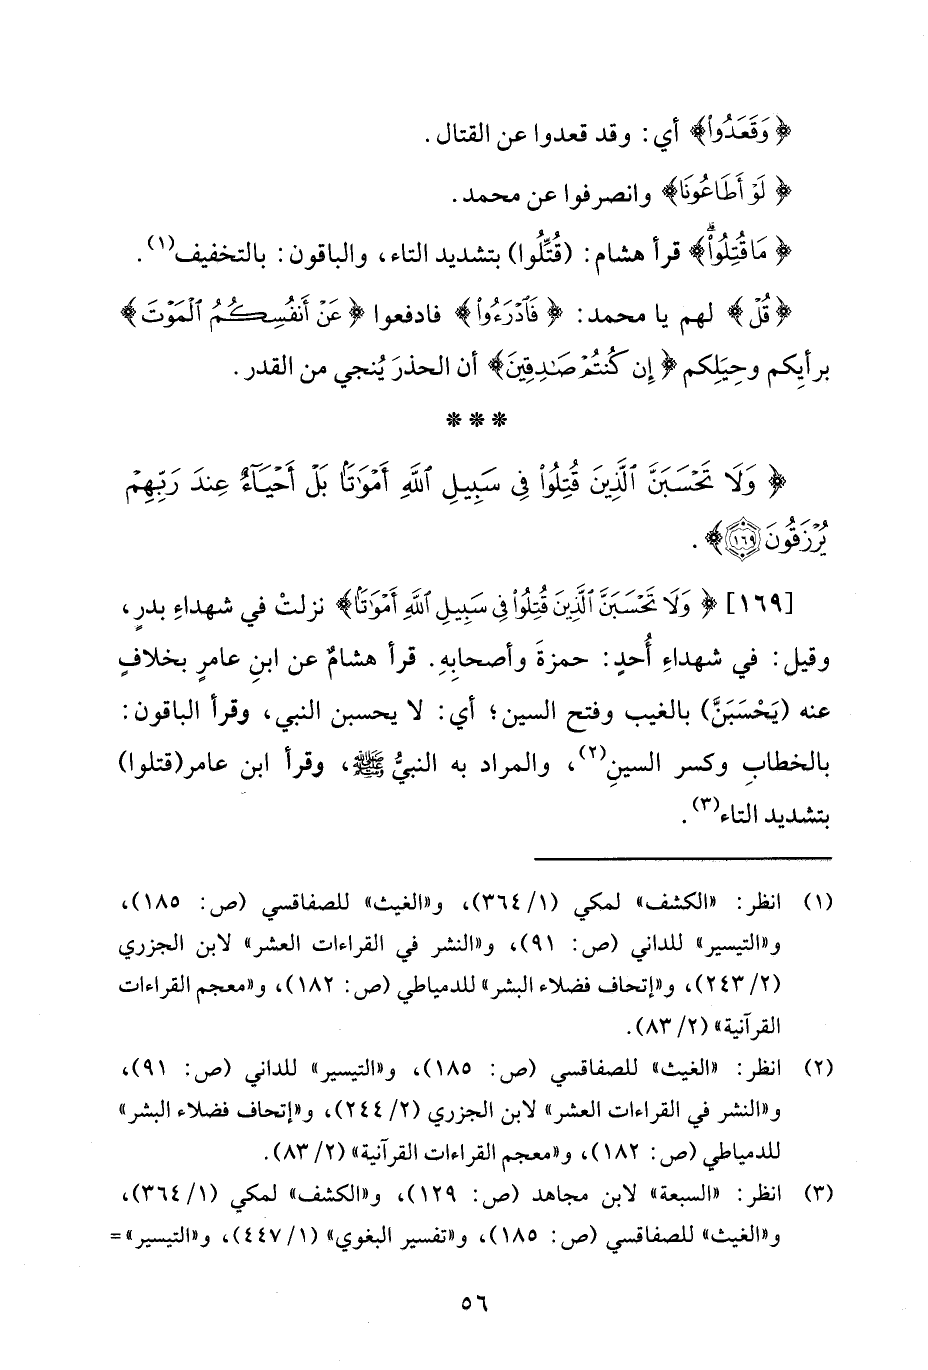 ﴿وَقَعَدُوا۟﴾ أي: وقد قعدوا عن القتال.
﴿لَوْ أَطَاعُونَا﴾ وانصرفوا عن محمد.
﴿مَا قُتِلُوا۟ۗ﴾ قرأ هشام: (قُتِّلُوا) بتشديد التاء، والباقون: بالتخفيف(١).
﴿قُلْ﴾ لهم يا محمد: ﴿فَٱدْرَءُوا۟﴾ فادفعوا ﴿عَنْ أَنفُسِكُمُ ٱلْمَوْتَ﴾
برأيكم وحِيَلِكم ﴿إِن كُنتُمْ صَٰدِقِينَ﴾ أن الحذرَ يُنجي من القدر.
* * *
﴿وَلَا تَحْسَبَنَّ ٱلَّذِينَ قُتِلُوا۟ فِى سَبِيلِ ٱللَّهِ أَمْوَٰتًۢا بَلْ أَحْيَآءٌ عِندَ رَبِّهِمْ
يُرْزَقُونَ ١٦٩﴾.
[١٦٩] ﴿وَلَا تَحْسَبَنَّ ٱلَّذِينَ قُتِلُوا۟ فِى سَبِيلِ ٱللَّهِ أَمْوَٰتًۢا﴾ نزلتْ في شهداءِ بدرٍ،
وقيل: في شهداءِ أُحدٍ: حمزةَ وأصحابِهِ. قرأ هشامٌ عن ابنِ عامرٍ بخلافٍ
عنه (يَحْسَبَنَّ) بالغيب وفتح السين؛ أي: لا يحسبن النبي، وقرأ الباقون:
بالخطابِ وكسر السينِ(٢)، والمراد به النبيُّ ﷺ، وقرأ ابن عامر(قتلوا)
بتشديد التاء(٣).
(١) انظر: «الكشف» لمكي (١/ ٣٦٤)، و«الغيث» للصفاقسي (ص: ١٨٥)،
و«التيسير» للداني (ص: ٩١)، و«النشر في القراءات العشر» لابن الجزري
(٢/ ٢٤٣)، و«إتحاف فضلاء البشر» للدمياطي (ص: ١٨٢)، و«معجم القراءات
القرآنية» (٢/ ٨٣).
(٢) انظر: «الغيث» للصفاقسي (ص: ١٨٥)، و«التيسير» للداني (ص: ٩١)،
و«النشر في القراءات العشر» لابن الجزري (٢/ ٢٤٤)، و«إتحاف فضلاء البشر»
للدمياطي (ص: ١٨٢)، و«معجم القراءات القرآنية» (٢/ ٨٣).
(٣) انظر: «السبعة» لابن مجاهد (ص: ١٢٩)، و«الكشف» لمكي (١/ ٣٦٤)،
و«الغيث» للصفاقسي (ص: ١٨٥)، و«تفسير البغوي» (١/ ٤٤٧)، و«التيسير» =
٥٦